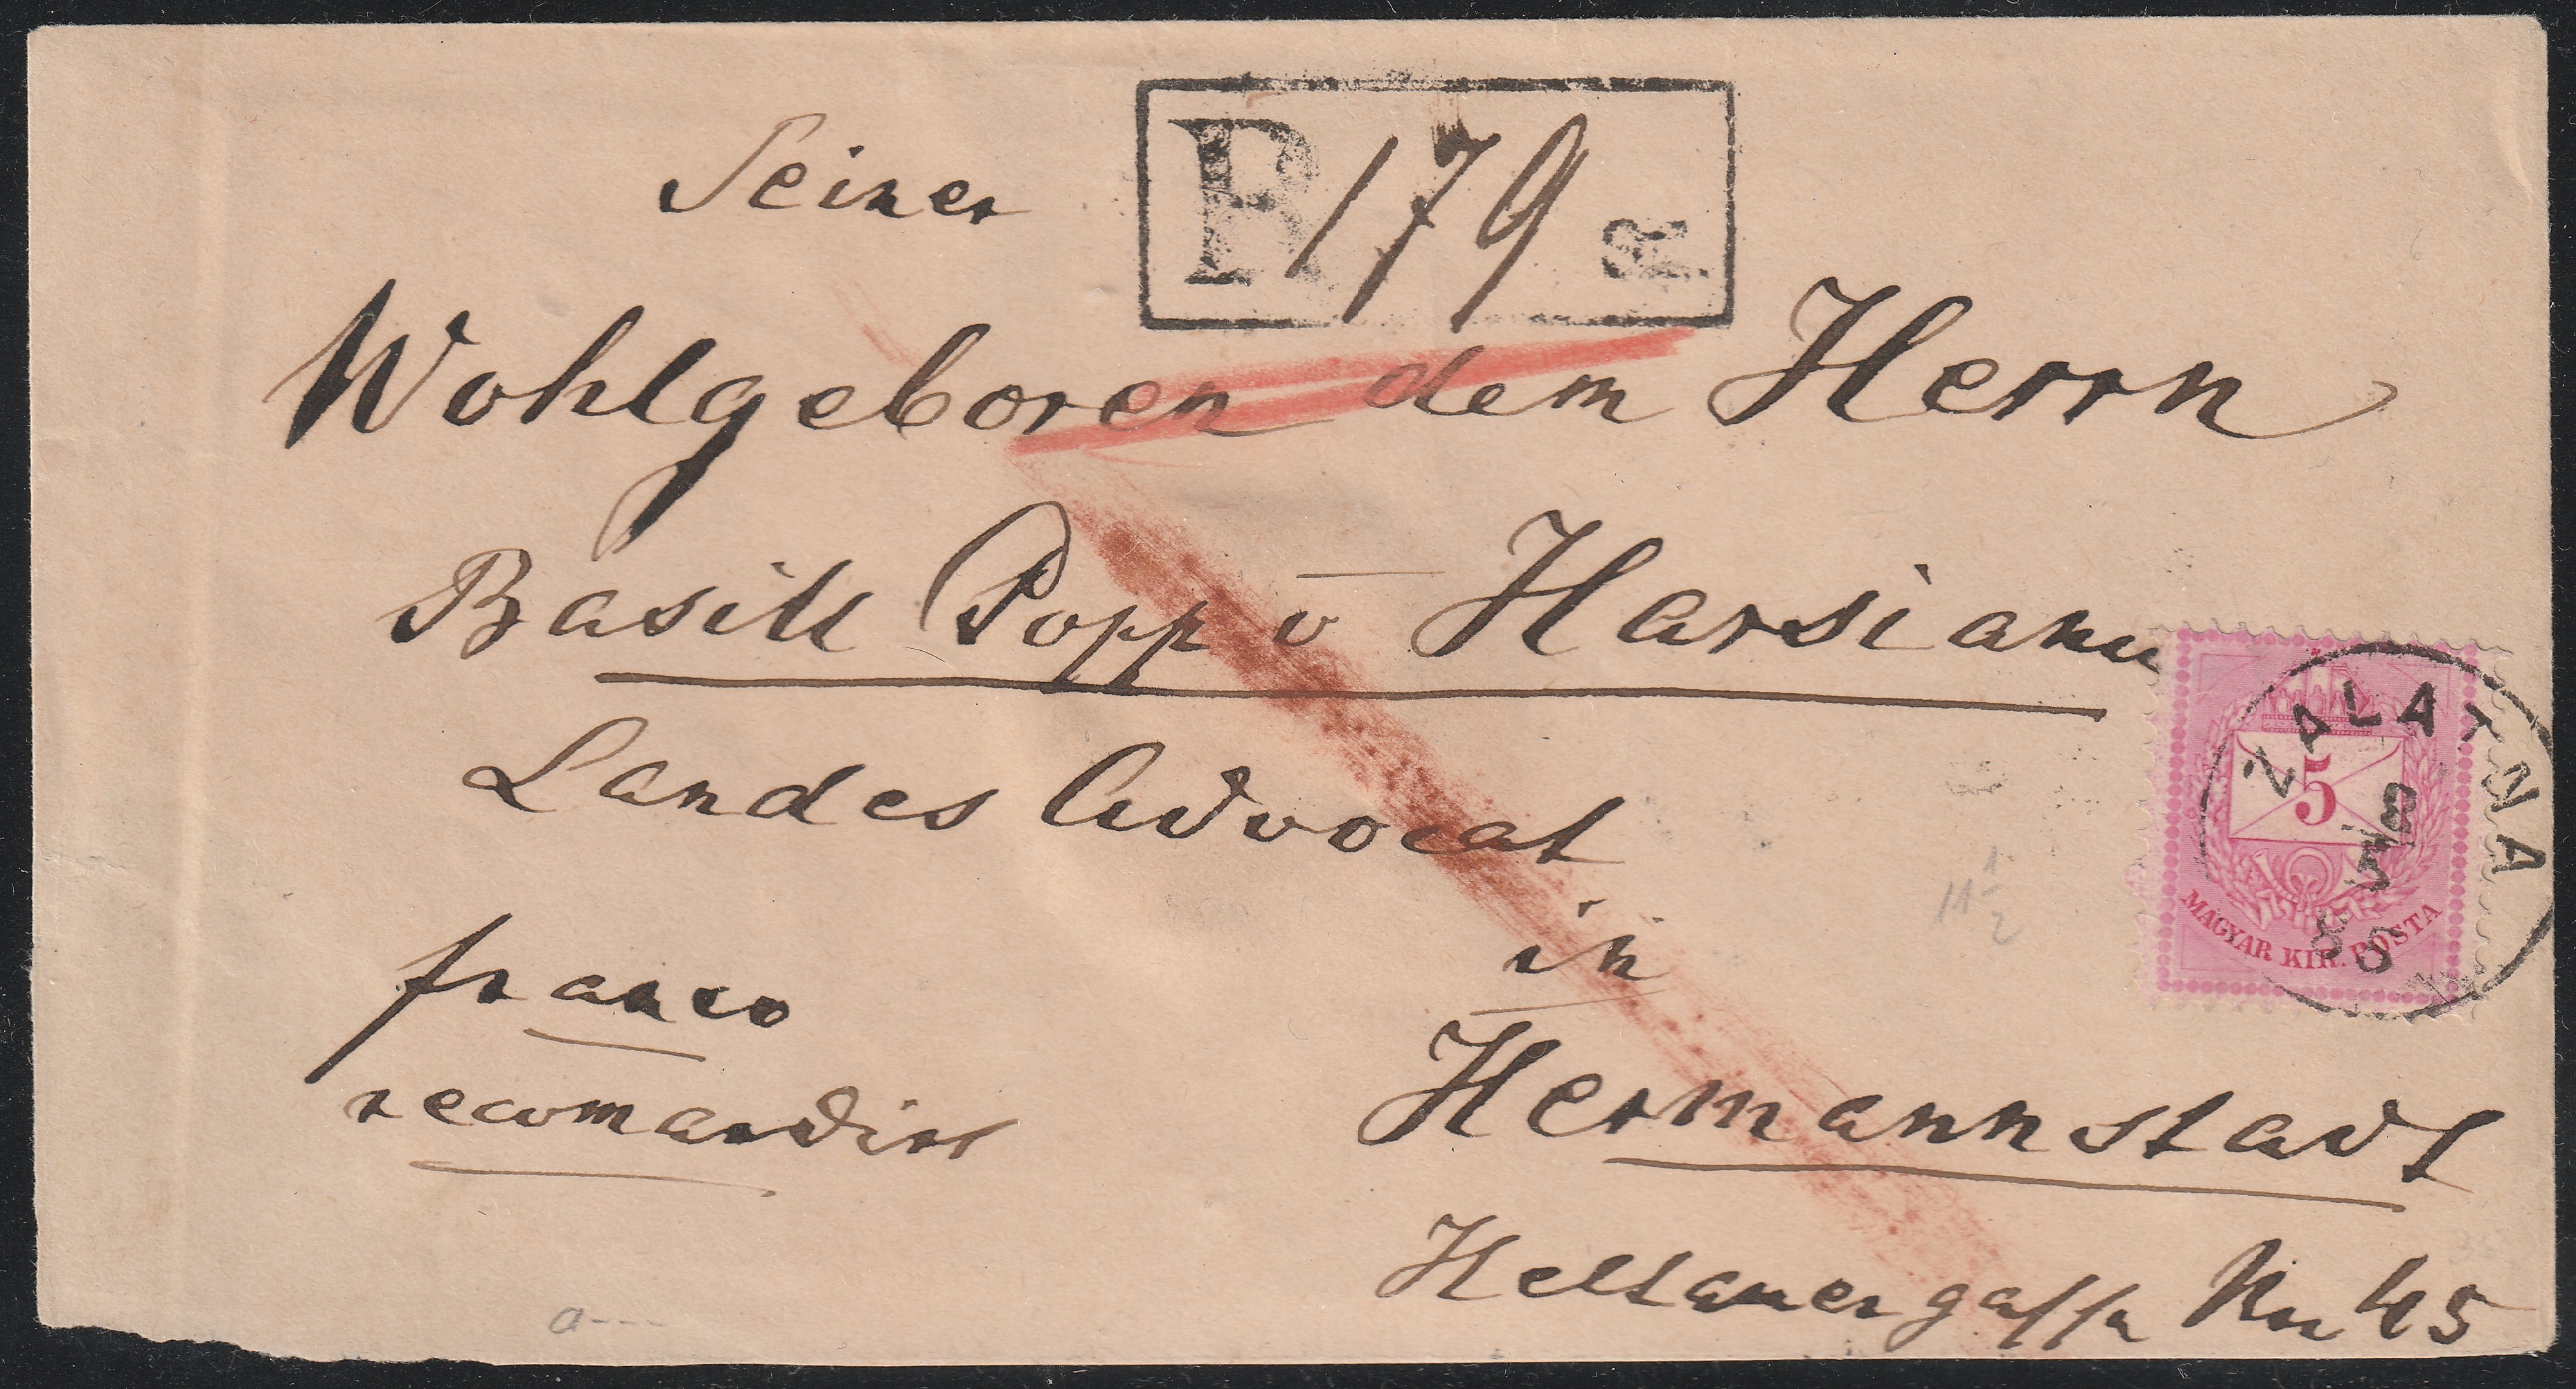 Seiner
R 179
Wohlgeboren dem Herrn
Basill Popp v Harsianu
Landes Advocat
in
franco
recomandirt
Hermannstadt
Heltauergasse Nr 45
ZALATNA
8
5
85
5
MAGYAR KIR. POSTA
11 1/2